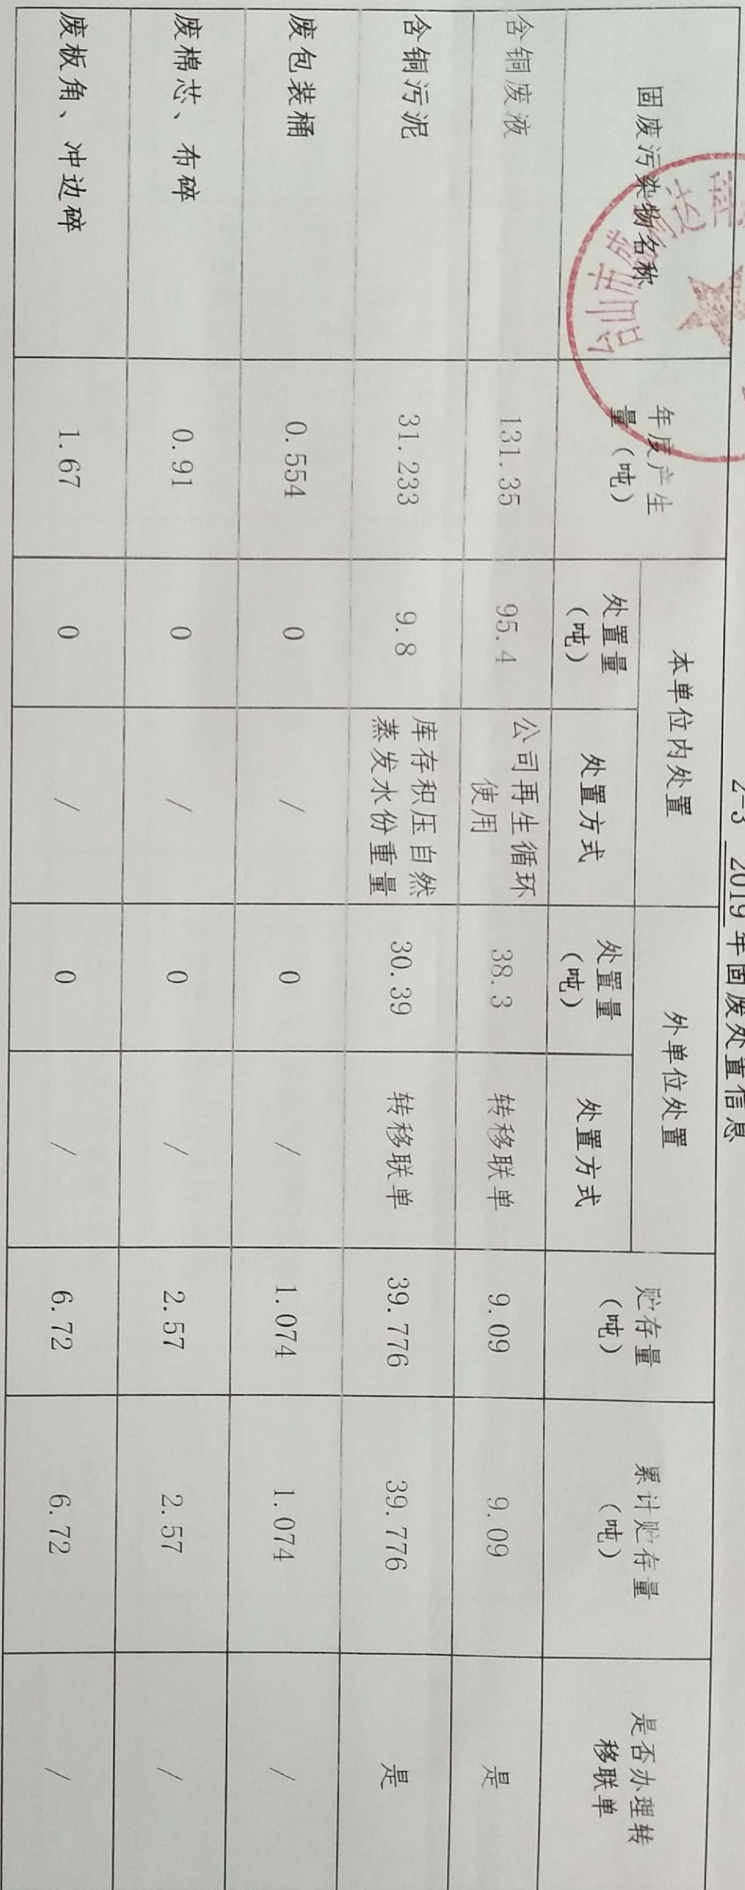 2-3 2019年固废处置信息
固废污染物名称
年度产生
量（吨）
本单位内处置
外单位处置
处置量
（吨）
处置方式
处置量
（吨）
处置方式
贮存量
（吨）
累计贮存量
（吨）
是否办理转
移联单
含铜废液
131.35
95.4
公司再生循环
使用
38.3
转移联单
9.09
9.09
是
含铜污泥
31.233
9.8
库存积压自然
蒸发水份重量
30.39
转移联单
39.776
39.776
是
废包装桶
0.554
0
/
0
/
1.074
1.074
/
废棉芯、布碎
0.91
0
/
0
/
2.57
2.57
/
废板角、冲边碎
1.67
0
/
0
/
6.72
6.72
/